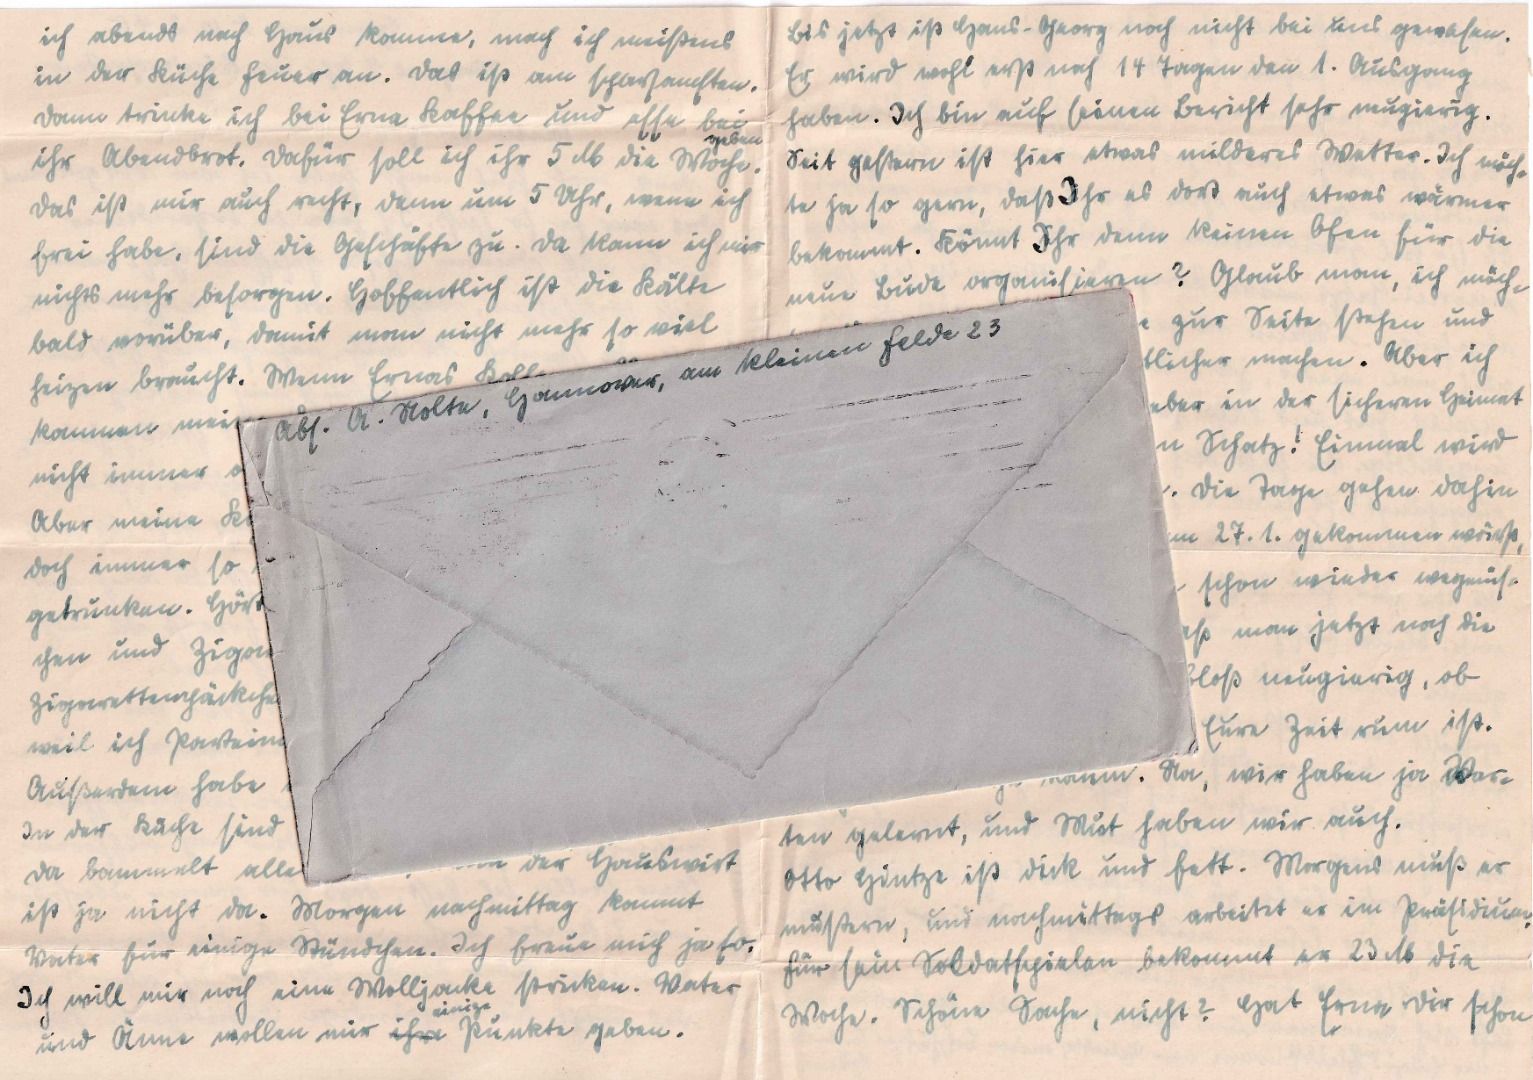 ich abends nach Haus komme, mach ich meistens
in der Küche Feuer an. Das ist am sparsamsten.
Dann trinke ich bei Erna Kaffee und esse bei
ihr Abendbrot. Dafür soll ich ihr 5 M die Woche geben.
Das ist mir auch recht, denn um 5 Uhr, wenn ich
frei habe, sind die Geschäfte zu. Da kann ich mir
nichts mehr besorgen. Hoffentlich ist die Kälte
bald vorüber, damit man nicht mehr so viel
heizen braucht. Wenn Ernas
kommen
nicht immer
Aber meine
doch immer so
getrunken.
chen und
Zigarettenpäckche
weil ich
Außerdem habe
In der Küche sind
da bammelt alle der Hauswirt
ist ja nicht da. Morgen nachmittag kommt
Vater für einige Stündchen. Ich freue mich ja so.
Ich will mir noch eine Wolljacke stricken. Vater
und Änne wollen mir ihre einige Punkte geben.
Abs. A. Nolte, Hannover, am kleinen Felde 23
Bis jetzt ist Hans-Georg noch nicht bei uns gewesen.
Er wird wohl erst nach 14 Tagen den 1. Ausgang
haben. Ich bin auf seinen Bericht sehr neugierig.
Seit gestern ist hier etwas milderes Wetter. Ich möch-
te ja so gern, daß Ihr es dort auch etwas wärmer
bekommt. Könnt Ihr denn keinen Ofen für die
neue Bude organisieren? Glaub man, ich möch-
zur Seite stehen und
tlicher machen. Aber ich
in der sicheren Heimat
n Schatz! Einmal wird
Die Tage gehen dahin
27. 1. gekommen wärst,
schon wieder
man jetzt noch die
bloß neugierig, ob
Eure Zeit rum ist.
Na, wir haben ja War-
ten gelernt, und Mut haben wir auch.
Otto Hintze ist dick und fett. Morgens muß er
mustern, und nachmittags arbeitet er im Präsidium.
Für sein Soldatspielen bekommt er 23 M die
Woche. Schöne Sache, nicht? Hat Erna Dir schon